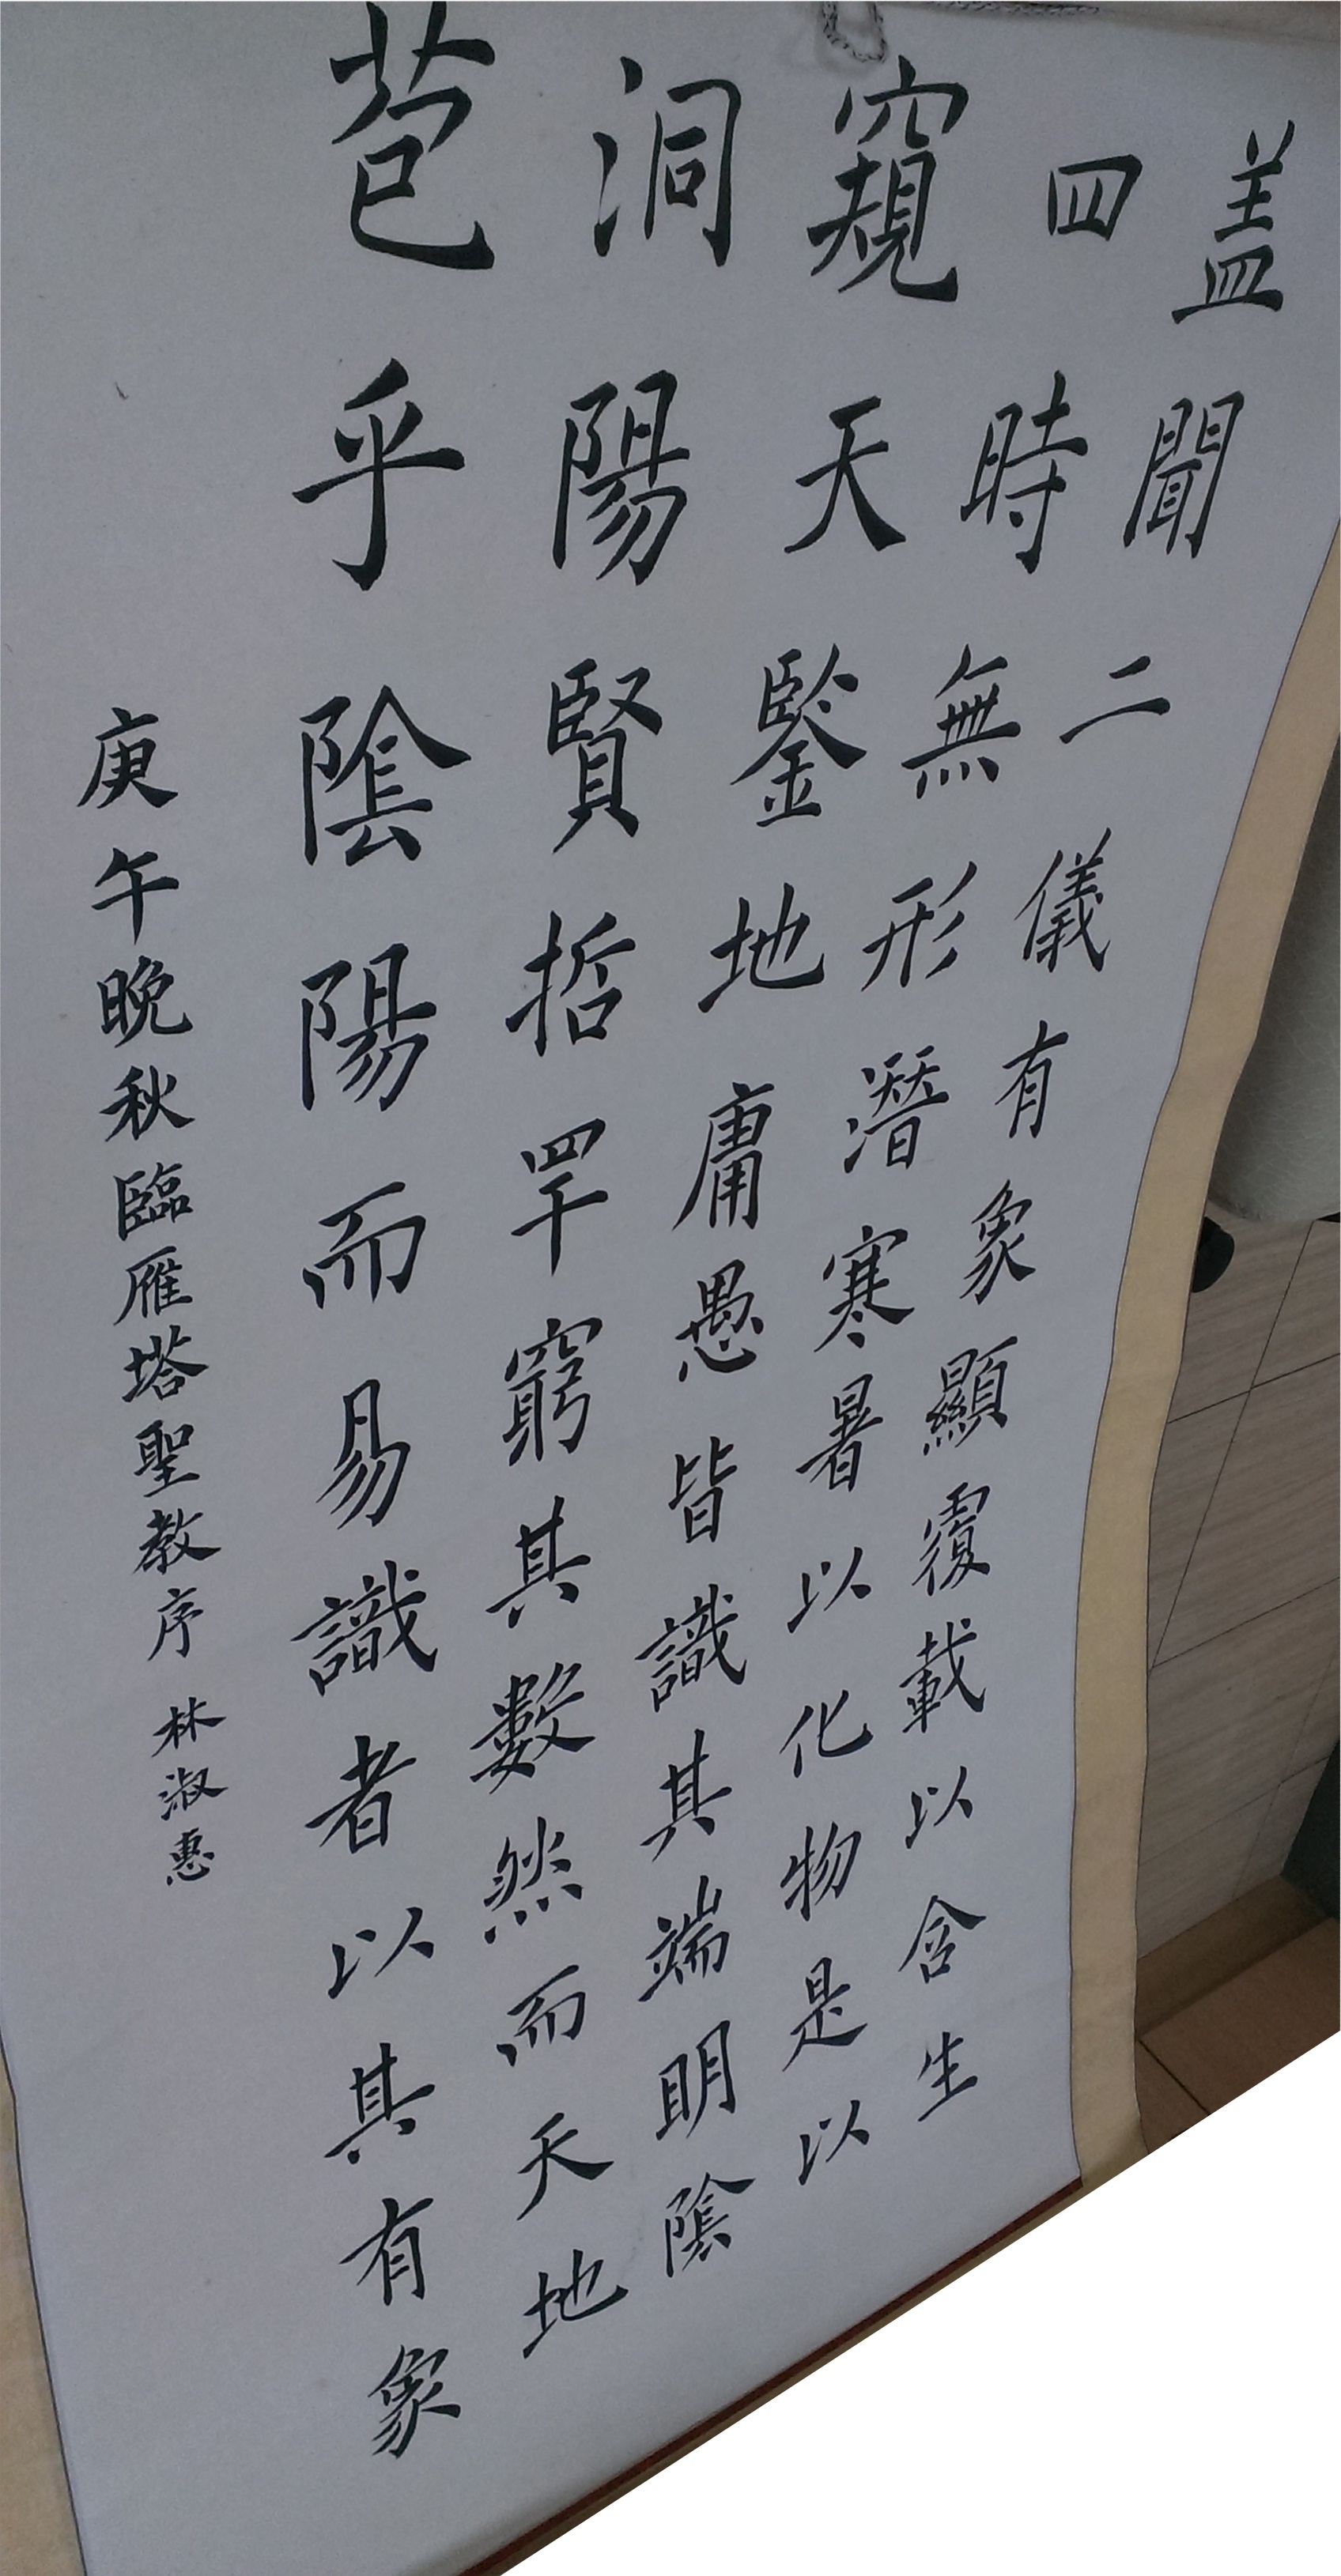 盖聞二儀有象顯覆載以含生
四時無形潛寒暑以化物是以
窺天鑒地庸愚皆識其端明陰
洞陽賢哲罕窮其數然而天地
苞乎陰陽而易識者以其有象
庚午晚秋臨雁塔聖教序 林淑惠